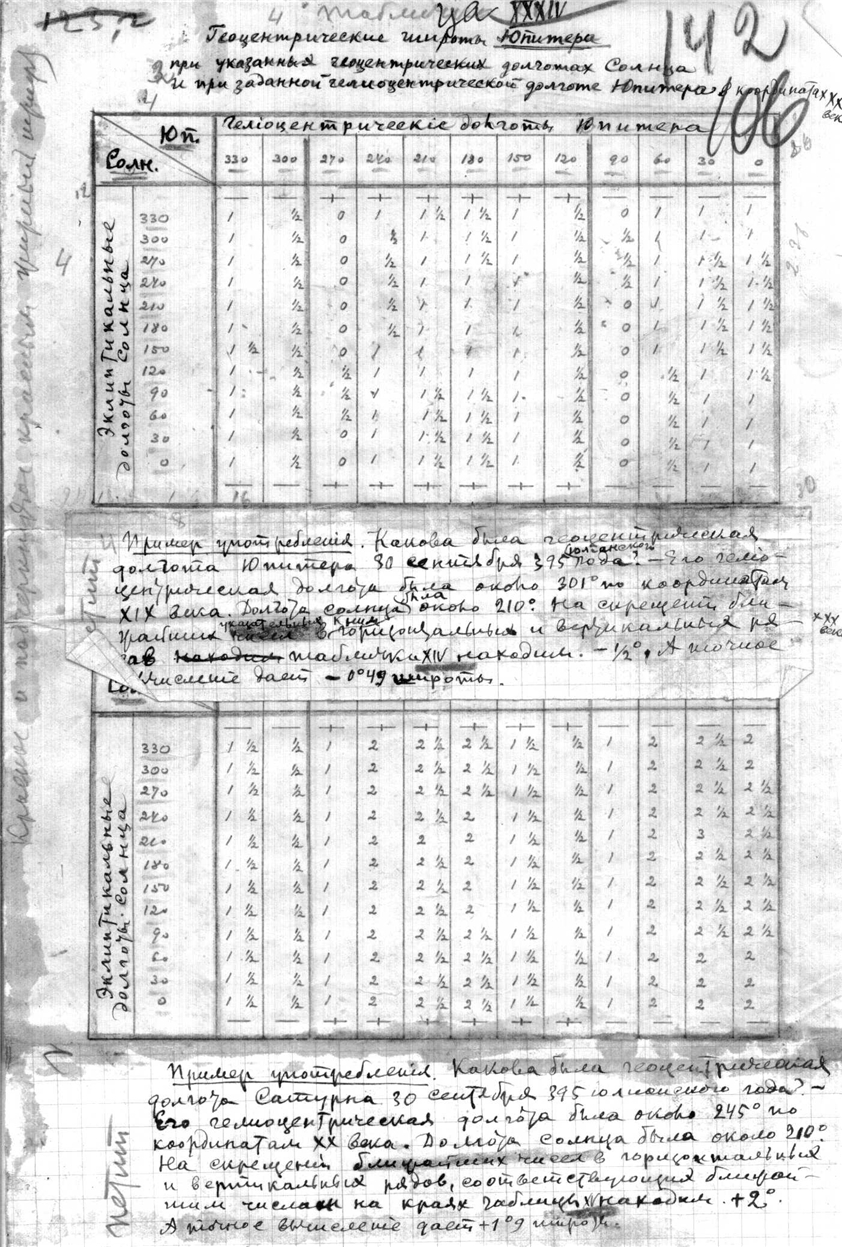 125,2
4 Таблица XXXIV
142
106
Геоцентрические широты Юпитера
при указанных геоцентрических долготах Солнца
и при заданной гелиоцентрической долготе Юпитера в координатах XX века
Юп. Гелiоцентрическiе долготы Юпитера
Солн. 330 300 270 240 210 180 150 120 90 60 30 0
Эклиптикальные долготы Солнца
— — + + + + + + — — — —
330 1 ½ 0 1 1 ½ 1 ½ 1 ½ 0 1 1 1
300 1 ½ 0 ½ 1 1 ½ 1 ½ ½ 1 1 1
270 1 ½ 0 ½ 1 1 1 ½ ½ 1 1 ½ 1 ½
240 1 ½ 0 ½ 1 1 1 ½ 0 1 1 ½ 1 ½
210 1 ½ 0 ½ 1 1 1 ½ 0 1 1 ½ 1 ½
180 1 ½ 0 ½ 1 1 1 ½ 0 1 1 ½ 1 ½
150 1 ½ ½ 0 1 1 1 1 ½ 0 1 1 ½ 1 ½
120 1 ½ ½ 1 1 1 1 ½ 0 ½ 1 1 ½
90 1 ½ ½ 1 1 ½ 1 ½ 1 ½ 0 ½ 1 1
60 1 ½ ½ 1 1 ½ 1 ½ 1 ½ 0 ½ 1 1
30 1 ½ 0 1 1 ½ 1 ½ 1 ½ 0 ½ 1 1
0 1 ½ 0 1 1 ½ 1 ½ 1 ½ 0 ½ 1 1
Пример употребленiя. Какова была геоцентрическая
долгота Юпитера 30 сентября 395 юлианского года? — Его гелiо-
центрическая долгота была около 301° по координатам
XIX века. Долгота солнца была около 210°. На скрещенiи бли-
жайших чисел в горизонтальных и вертикальных ря-
дах находим таблички XIV находим. — ½°. А точное
числение дает — 0°49 широты.
XXX век
петит
Солн.
Эклиптикальные долготы Солнца
330 1 ½ ½ 1 2 2 ½ 2 ½ 1 ½ ½ 1 2 2 ½ 2
300 1 ½ ½ 1 2 2 ½ 2 ½ 1 ½ ½ 1 2 2 ½ 2
270 1 ½ ½ 1 2 2 ½ 2 ½ 1 ½ ½ 1 2 2 ½ 2 ½
240 1 ½ ½ 1 2 2 ½ 2 1 ½ ½ 1 2 2 ½ 2 ½
210 1 ½ ½ 1 2 2 2 1 ½ ½ 1 2 3 2 ½
180 1 ½ ½ 1 2 2 ½ 2 1 ½ ½ 1 2 2 ½ 2 ½
150 1 ½ ½ 1 2 2 ½ 2 1 ½ ½ 1 2 2 ½ 2 ½
120 1 ½ ½ 1 2 2 ½ 2 1 ½ ½ 1 2 2 ½ 2 ½
90 1 ½ ½ 1 2 2 ½ 2 ½ 1 ½ ½ 1 2 2 ½ 2 ½
60 1 ½ ½ 1 2 2 ½ 2 ½ 1 ½ ½ 1 2 2 2
30 1 ½ ½ 1 2 2 ½ 2 ½ 1 ½ ½ 1 2 2 2
0 1 ½ ½ 1 2 2 ½ 2 ½ 1 ½ ½ 1 2 2 2
Пример употребленiя. Какова была геоцентрическая
долгота Сатурна 30 сентября 395 юлианского года? —
Его гелиоцентрическая долгота была около 245° по
координатам XX века. Долгота солнца была около 210°.
На скрещенiи ближайших чисел в горизонтальных
и вертикальных рядов, соответствующих ближай-
шим числам на краях таблицы XV находим. +2°.
А точное вычисленiе дает +1°9 широты.
петит